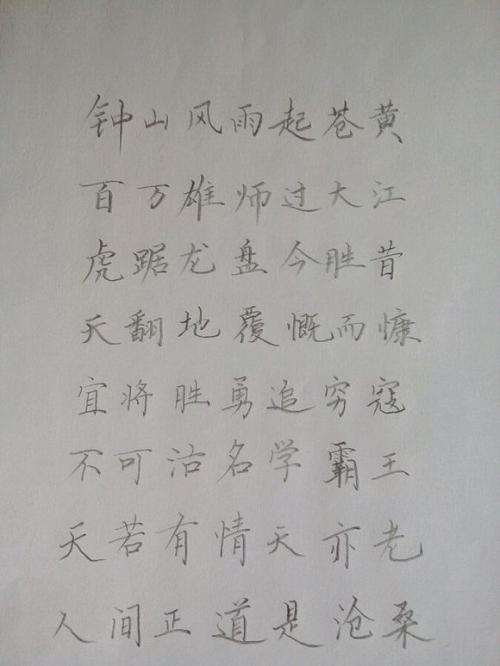 钟山风雨起苍黄
百万雄师过大江
虎踞龙盘今胜昔
天翻地覆慨而慷
宜将胜勇追穷寇
不可沽名学霸王
天若有情天亦老
人间正道是沧桑